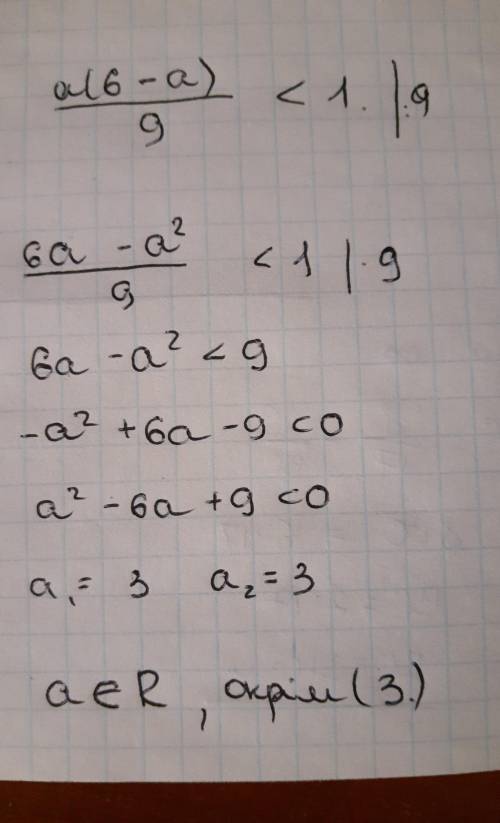 a(6 - a) / 9 < 1. | : 9
6a - a² / 9 < 1 | · 9
6a - a² < 9
-a² + 6a - 9 < 0
a² - 6a + 9 < 0
a₁ = 3 a₂ = 3
a ∈ R, окрім (3.)